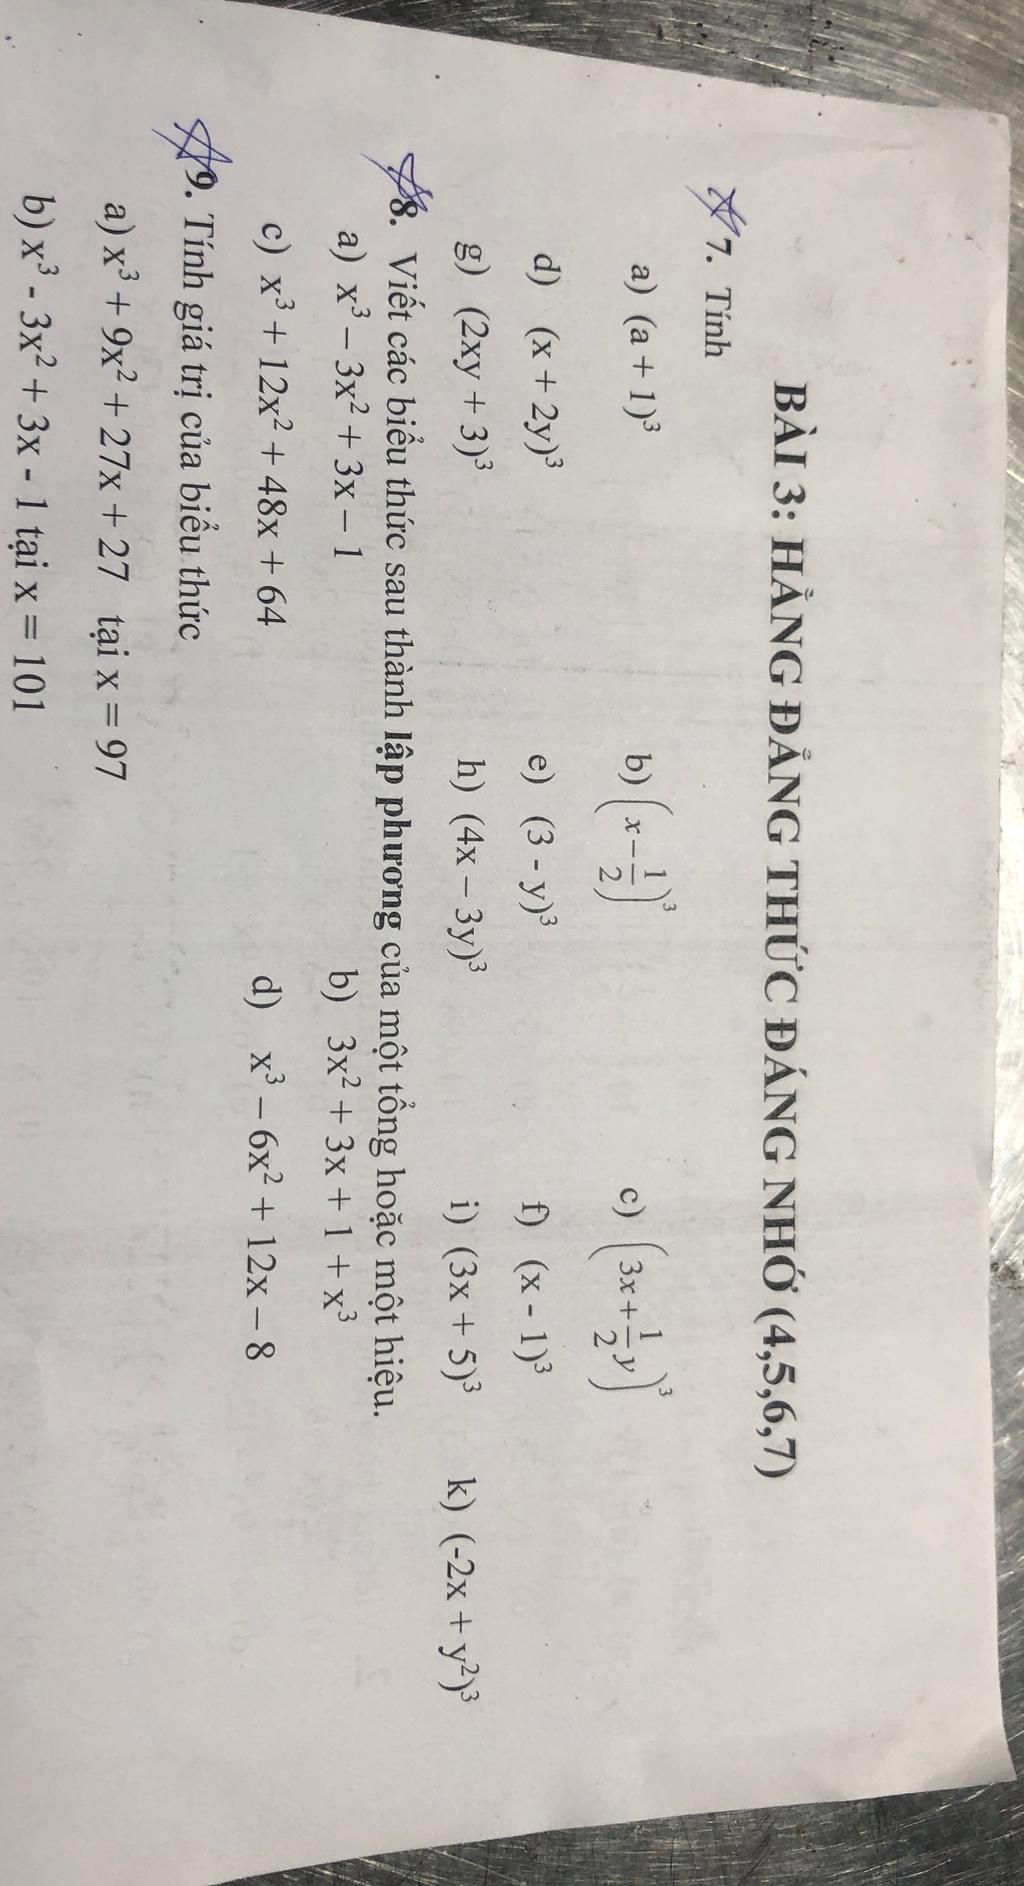 BÀI 3: HẰNG ĐẲNG THỨC ĐÁNG NHỚ (4,5,6,7)
7. Tính
a) (a + 1)³ b) (x − 1/2)³ c) (3x + 1/2 y)³
d) (x + 2y)³ e) (3 - y)³ f) (x - 1)³
g) (2xy + 3)³ h) (4x – 3y)³ i) (3x + 5)³ k) (-2x + y²)³
8. Viết các biểu thức sau thành lập phương của một tổng hoặc một hiệu.
a) x³ – 3x² + 3x – 1 b) 3x² + 3x + 1 + x³
c) x³ + 12x² + 48x + 64 d) x³ – 6x² + 12x – 8
9. Tính giá trị của biểu thức
a) x³ + 9x² + 27x + 27 tại x = 97
b) x³ - 3x² + 3x - 1 tại x = 101